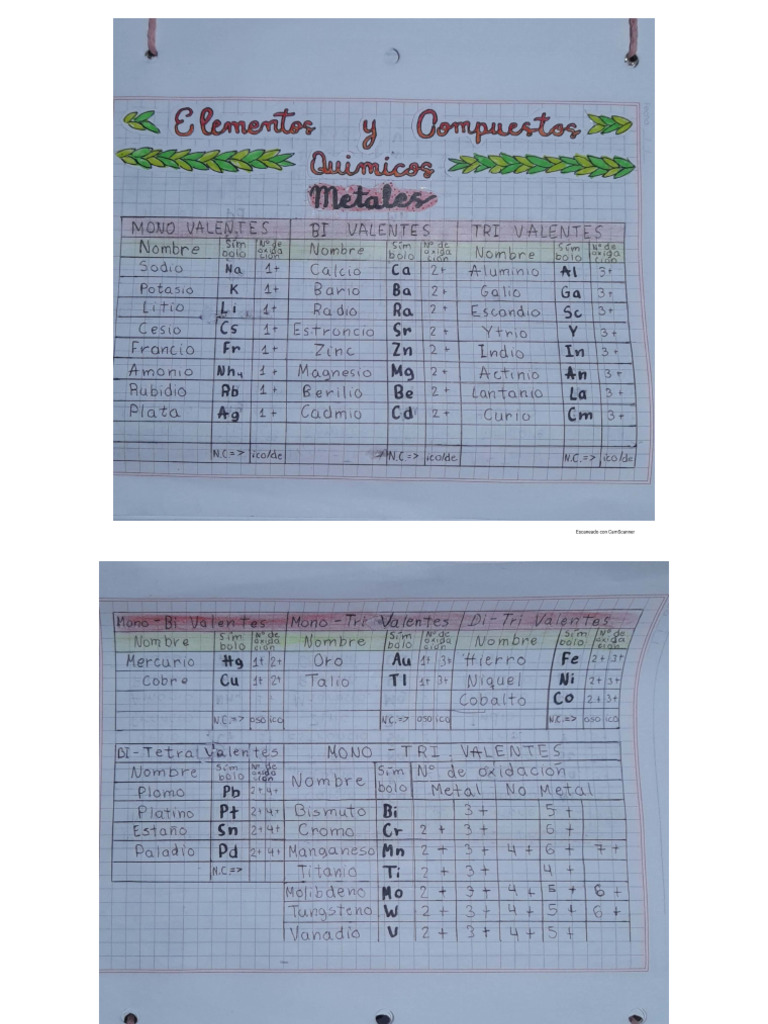 Elementos y Compuestos
Químicos
Metales
MONO VALENTES BI VALENTES TRI VALENTES
Nombre Símbolo Nº de oxidación Nombre Símbolo Nº de oxidación Nombre Símbolo Nº de oxidación
Sodio Na 1+ Calcio Ca 2+ Aluminio Al 3+
Potasio K 1+ Bario Ba 2+ Galio Ga 3+
Litio Li 1+ Radio Ra 2+ Escandio Sc 3+
Cesio Cs 1+ Estroncio Sr 2+ Ytrio Y 3+
Francio Fr 1+ Zinc Zn 2+ Indio In 3+
Amonio Nh4 1+ Magnesio Mg 2+ Actinio An 3+
Rubidio Rb 1+ Berilio Be 2+ Lantanio La 3+
Plata Ag 1+ Cadmio Cd 2+ Curio Cm 3+
N.C => ico/de N.C => ico/de N.C. => ico/de
Escaneado con CamScanner
Mono - Bi Valentes Mono - Tri Valentes Di - Tri Valentes
Nombre Símbolo Nº de oxidación Nombre Símbolo Nº de oxidación Nombre Símbolo Nº de oxidación
Mercurio Hg 1+ 2+ Oro Au 1+ 3+ Hierro Fe 2+ 3+
Cobre Cu 1+ 2+ Talio Tl 1+ 3+ Niquel Ni 2+ 3+
Cobalto Co 2+ 3+
N.C. => oso ico N.C. => oso ico N.C. => oso ico
BI - Tetral Valentes MONO - TRI. VALENTES
Nombre Símbolo Nº de oxidación Nombre Símbolo Nº de oxidación
Metal No Metal
Plomo Pb 2+ 4+ Bismuto Bi 3+ 5+
Platino Pt 2+ 4+ Cromo Cr 2+ 3+ 6+
Estaño Sn 2+ 4+ Manganeso Mn 2+ 3+ 4+ 6+ 7+
Paladio Pd 2+ 4+ Titanio Ti 2+ 3+ 4+
N.C => Molibdeno Mo 2+ 3+ 4+ 5+ 6+
Tungsteno W 2+ 3+ 4+ 5+ 6+
Vanadio V 2+ 3+ 4+ 5+